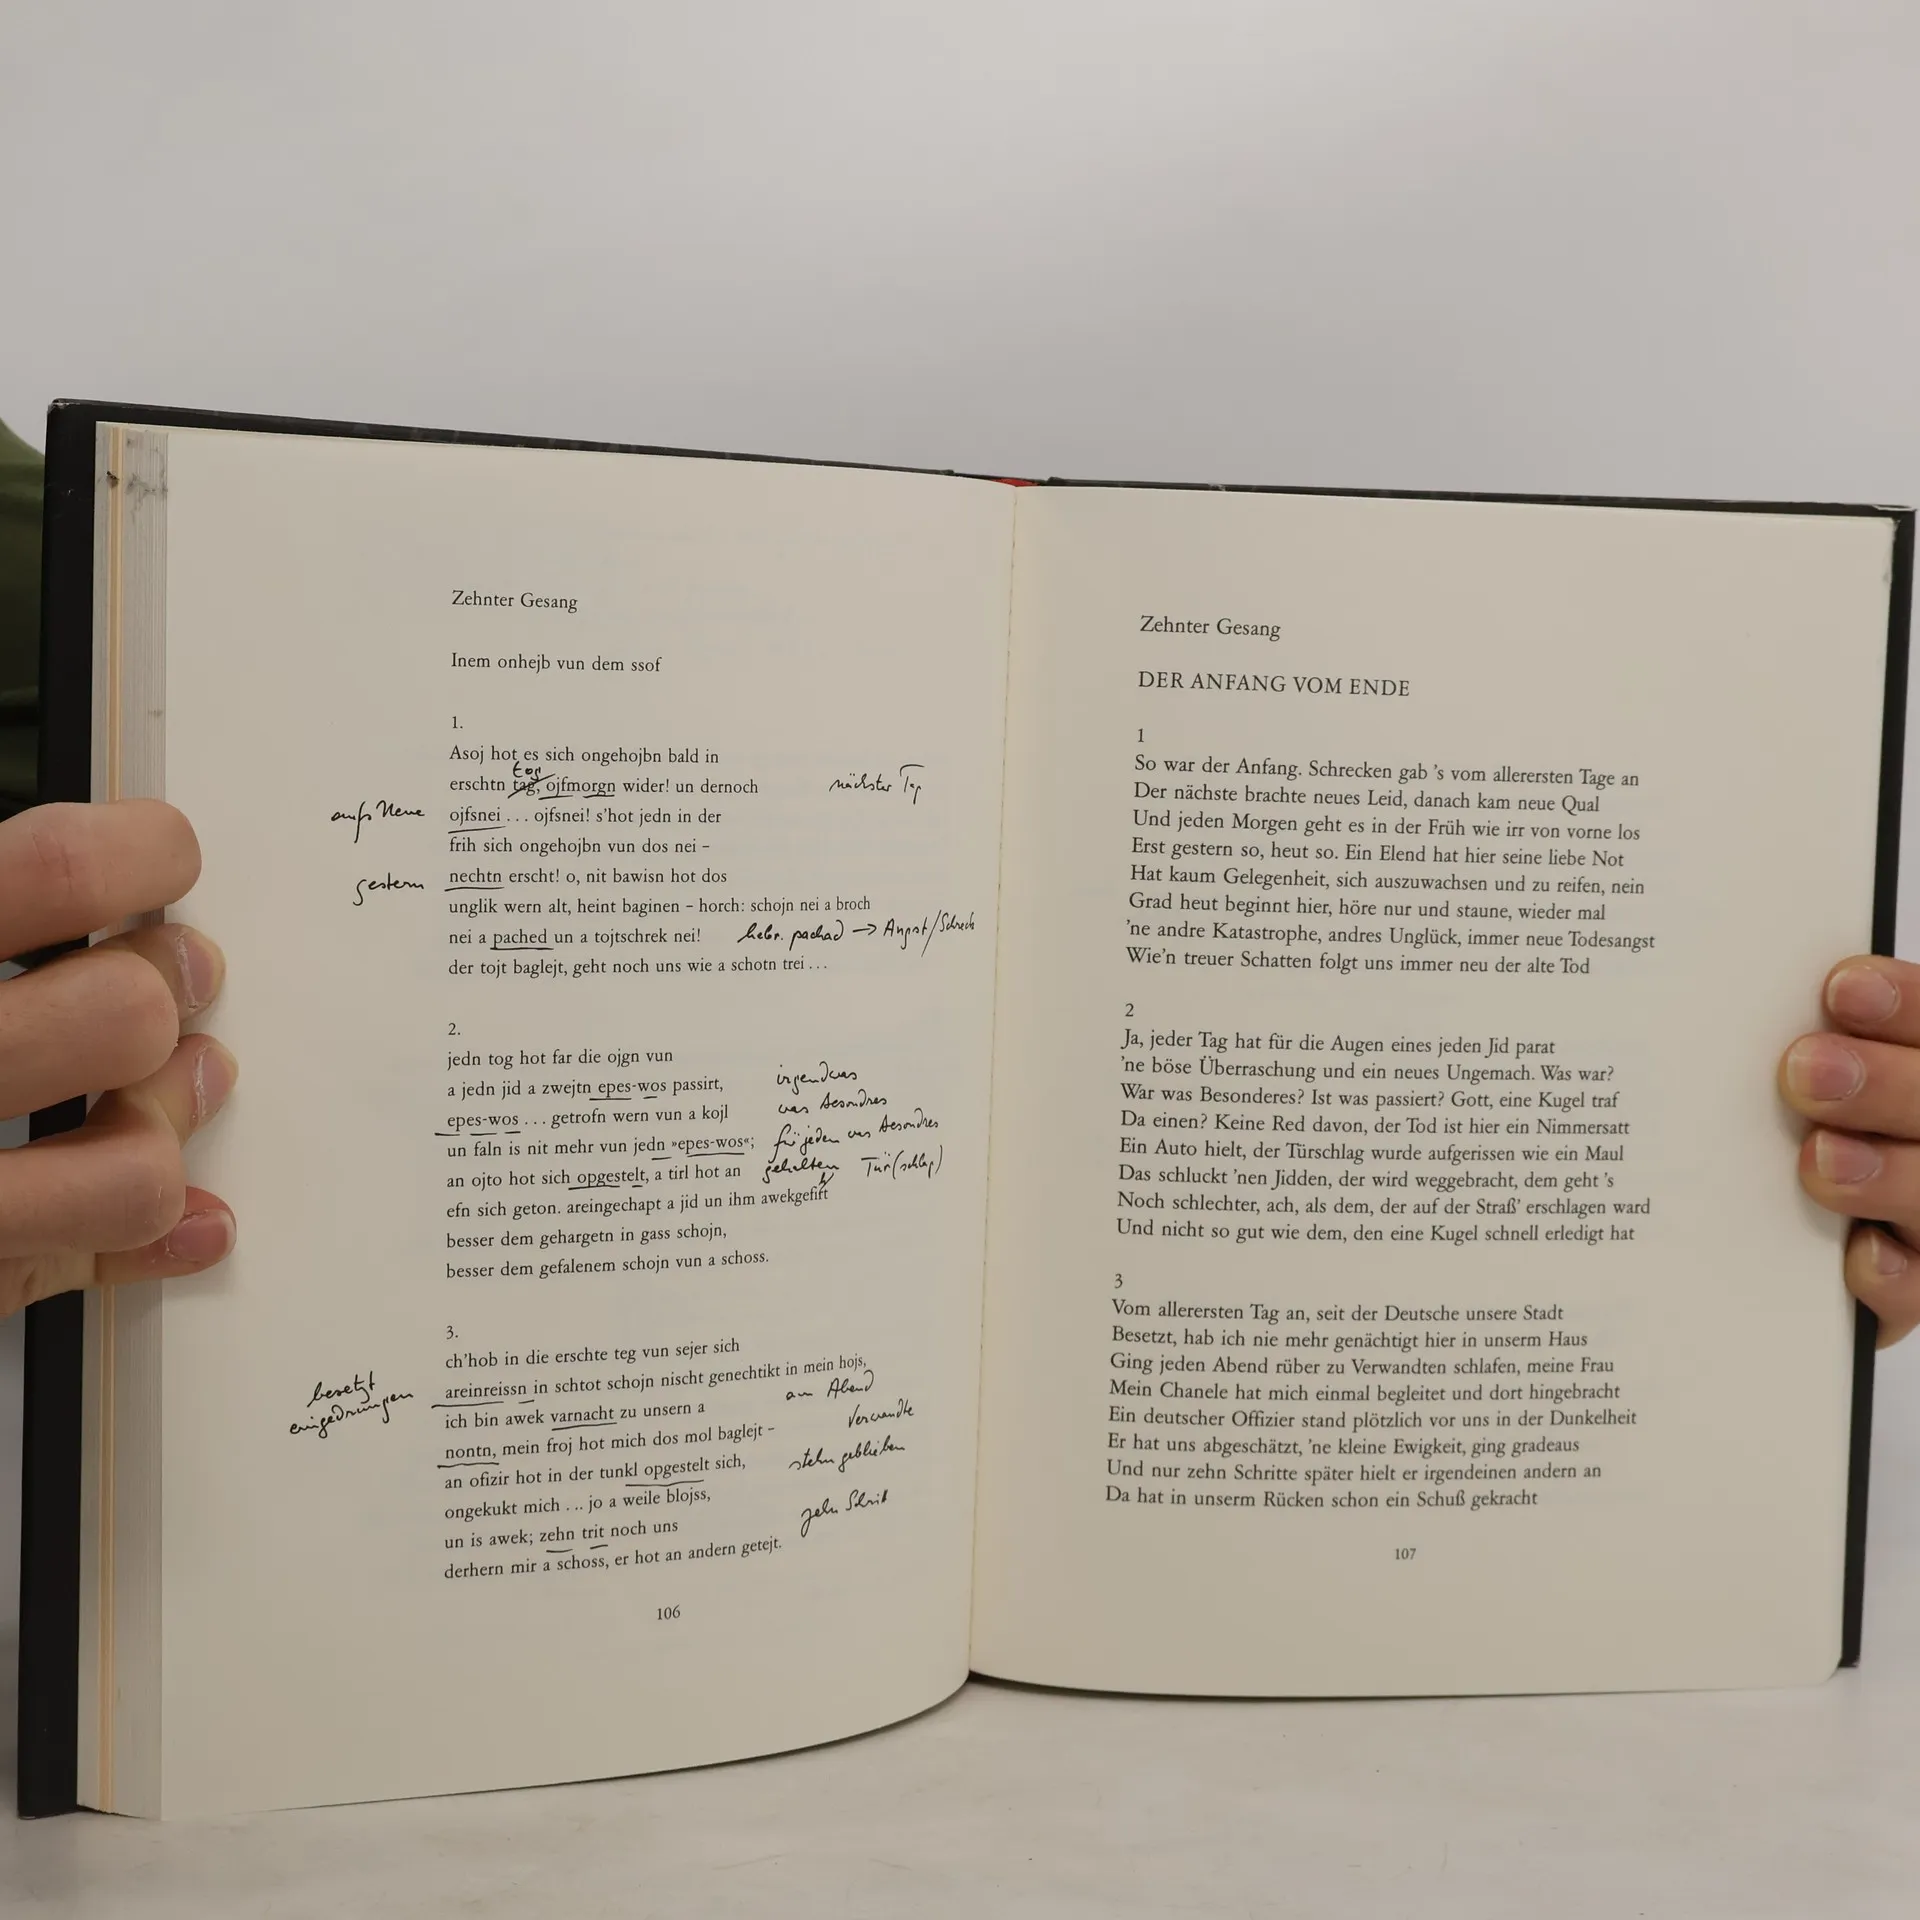 Zehnter Gesang
Inem onhejb vun dem ssof
1.
Asoj hot es sich ongehojbn bald in
tog
erschtn tag, ojfmorgn wider! un dernoch nächster Tag
aufs Neue ojfsnei ... ojfsnei! s'hot jedn in der
frih sich ongehojbn vun dos nei –
gestern nechtn erscht! o, nit bawisn hot dos
unglik wern alt, heint baginen – horch: schojn nei a broch
nei a pached un a tojtschrek nei! hebr. pachad → Angst/Schreck
der tojt baglejt, geht noch uns wie a schotn trei ...
2.
jedn tog hot far die ojgn vun
a jedn jid a zwejtn epes-wos passirt, irgendwas
epes-wos ... getrofn wern vun a kojl was Besondres
un faln is nit mehr vun jedn »epes-wos«; für jeden was Besondres
an ojto hot sich opgestelt, a tirl hot an gehalten Tür(schlag)
efn sich geton. areingechapt a jid un ihm awekgefirt
besser dem gehargetn in gass schojn,
besser dem gefalenem schojn vun a schoss.
3.
ch'hob in die erschte teg vun sejer sich
besetzt
eingedrungen areinreissn in schtot schojn nischt genechtikt in mein hojs,
ich bin awek varnacht zu unsern a am Abend
nontn, mein froj hot mich dos mol baglejt – Verwandte
an ofizir hot in der tunkl opgestelt sich, stehn geblieben
ongekukt mich ... jo a weile blojss,
un is awek; zehn trit noch uns zehn Schritt
derhern mir a schoss, er hot an andern getejt.
106
Zehnter Gesang
DER ANFANG VOM ENDE
1
So war der Anfang. Schrecken gab 's vom allerersten Tage an
Der nächste brachte neues Leid, danach kam neue Qual
Und jeden Morgen geht es in der Früh wie irr von vorne los
Erst gestern so, heut so. Ein Elend hat hier seine liebe Not
Hat kaum Gelegenheit, sich auszuwachsen und zu reifen, nein
Grad heut beginnt hier, höre nur und staune, wieder mal
'ne andre Katastrophe, andres Unglück, immer neue Todesangst
Wie'n treuer Schatten folgt uns immer neu der alte Tod
2
Ja, jeder Tag hat für die Augen eines jeden Jid parat
'ne böse Überraschung und ein neues Ungemach. Was war?
War was Besonderes? Ist was passiert? Gott, eine Kugel traf
Da einen? Keine Red davon, der Tod ist hier ein Nimmersatt
Ein Auto hielt, der Türschlag wurde aufgerissen wie ein Maul
Das schluckt 'nen Jidden, der wird weggebracht, dem geht 's
Noch schlechter, ach, als dem, der auf der Straß' erschlagen ward
Und nicht so gut wie dem, den eine Kugel schnell erledigt hat
3
Vom allerersten Tag an, seit der Deutsche unsere Stadt
Besetzt, hab ich nie mehr genächtigt hier in unserm Haus
Ging jeden Abend rüber zu Verwandten schlafen, meine Frau
Mein Chanele hat mich einmal begleitet und dort hingebracht
Ein deutscher Offizier stand plötzlich vor uns in der Dunkelheit
Er hat uns abgeschätzt, 'ne kleine Ewigkeit, ging gradeaus
Und nur zehn Schritte später hielt er irgendeinen andern an
Da hat in unserm Rücken schon ein Schuß gekracht
107